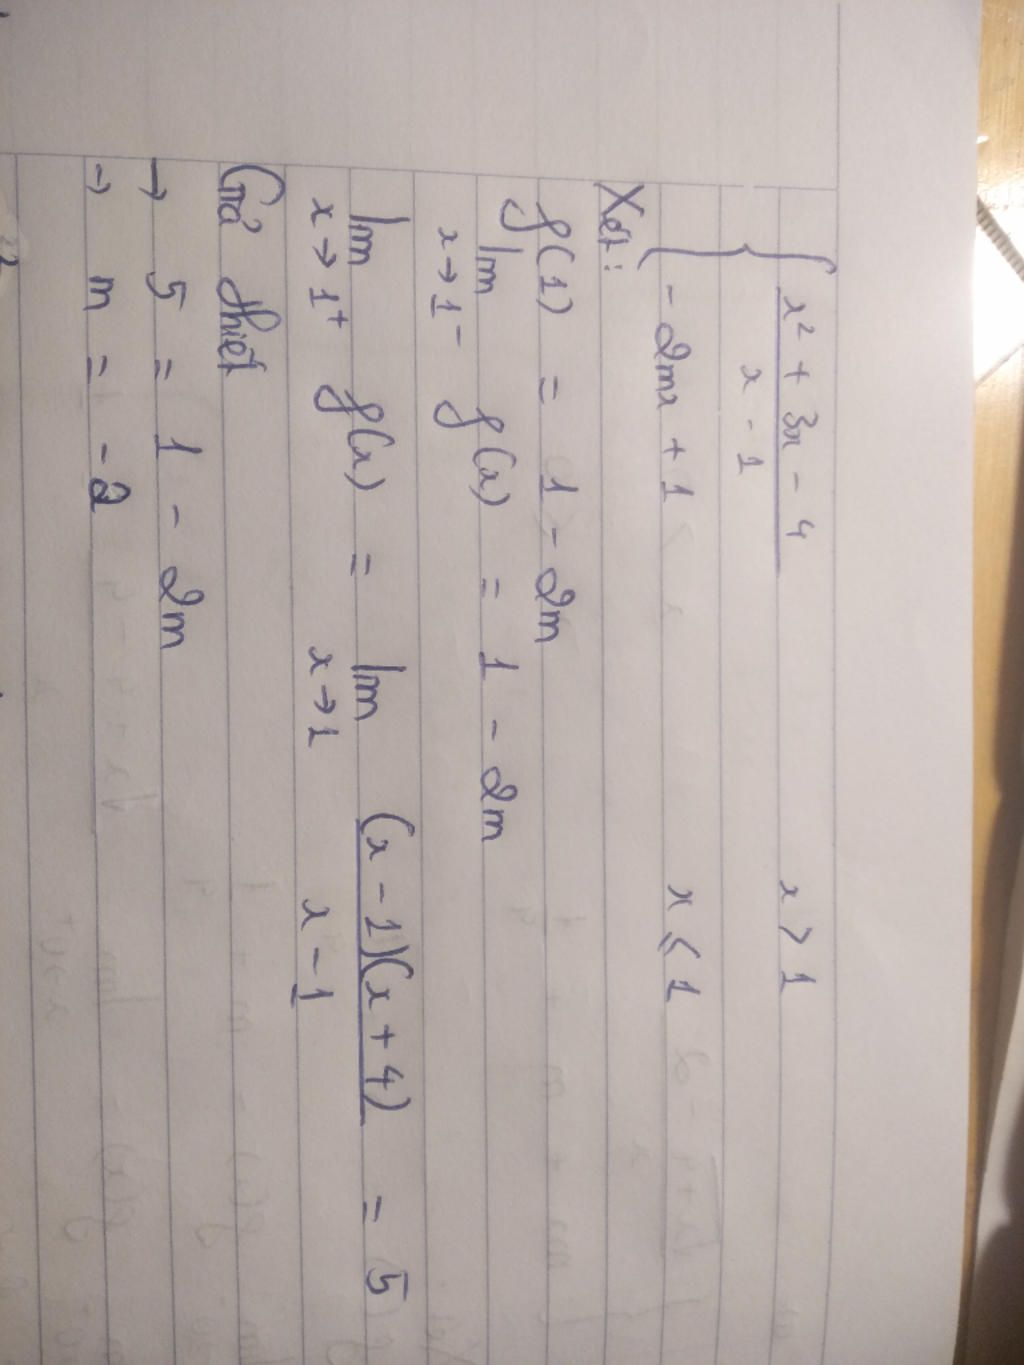 x² + 3x - 4 x > 1
x - 1
- 2mx + 1 x ≤ 1
Xét:
f(1) = 1 - 2m
lim f(x) = 1 - 2m
x → 1⁻
lim f(x) = lim (x - 1)(x + 4) = 5
x → 1⁺ x → 1 x - 1
Giả thiết
→ 5 = 1 - 2m
→ m = -2